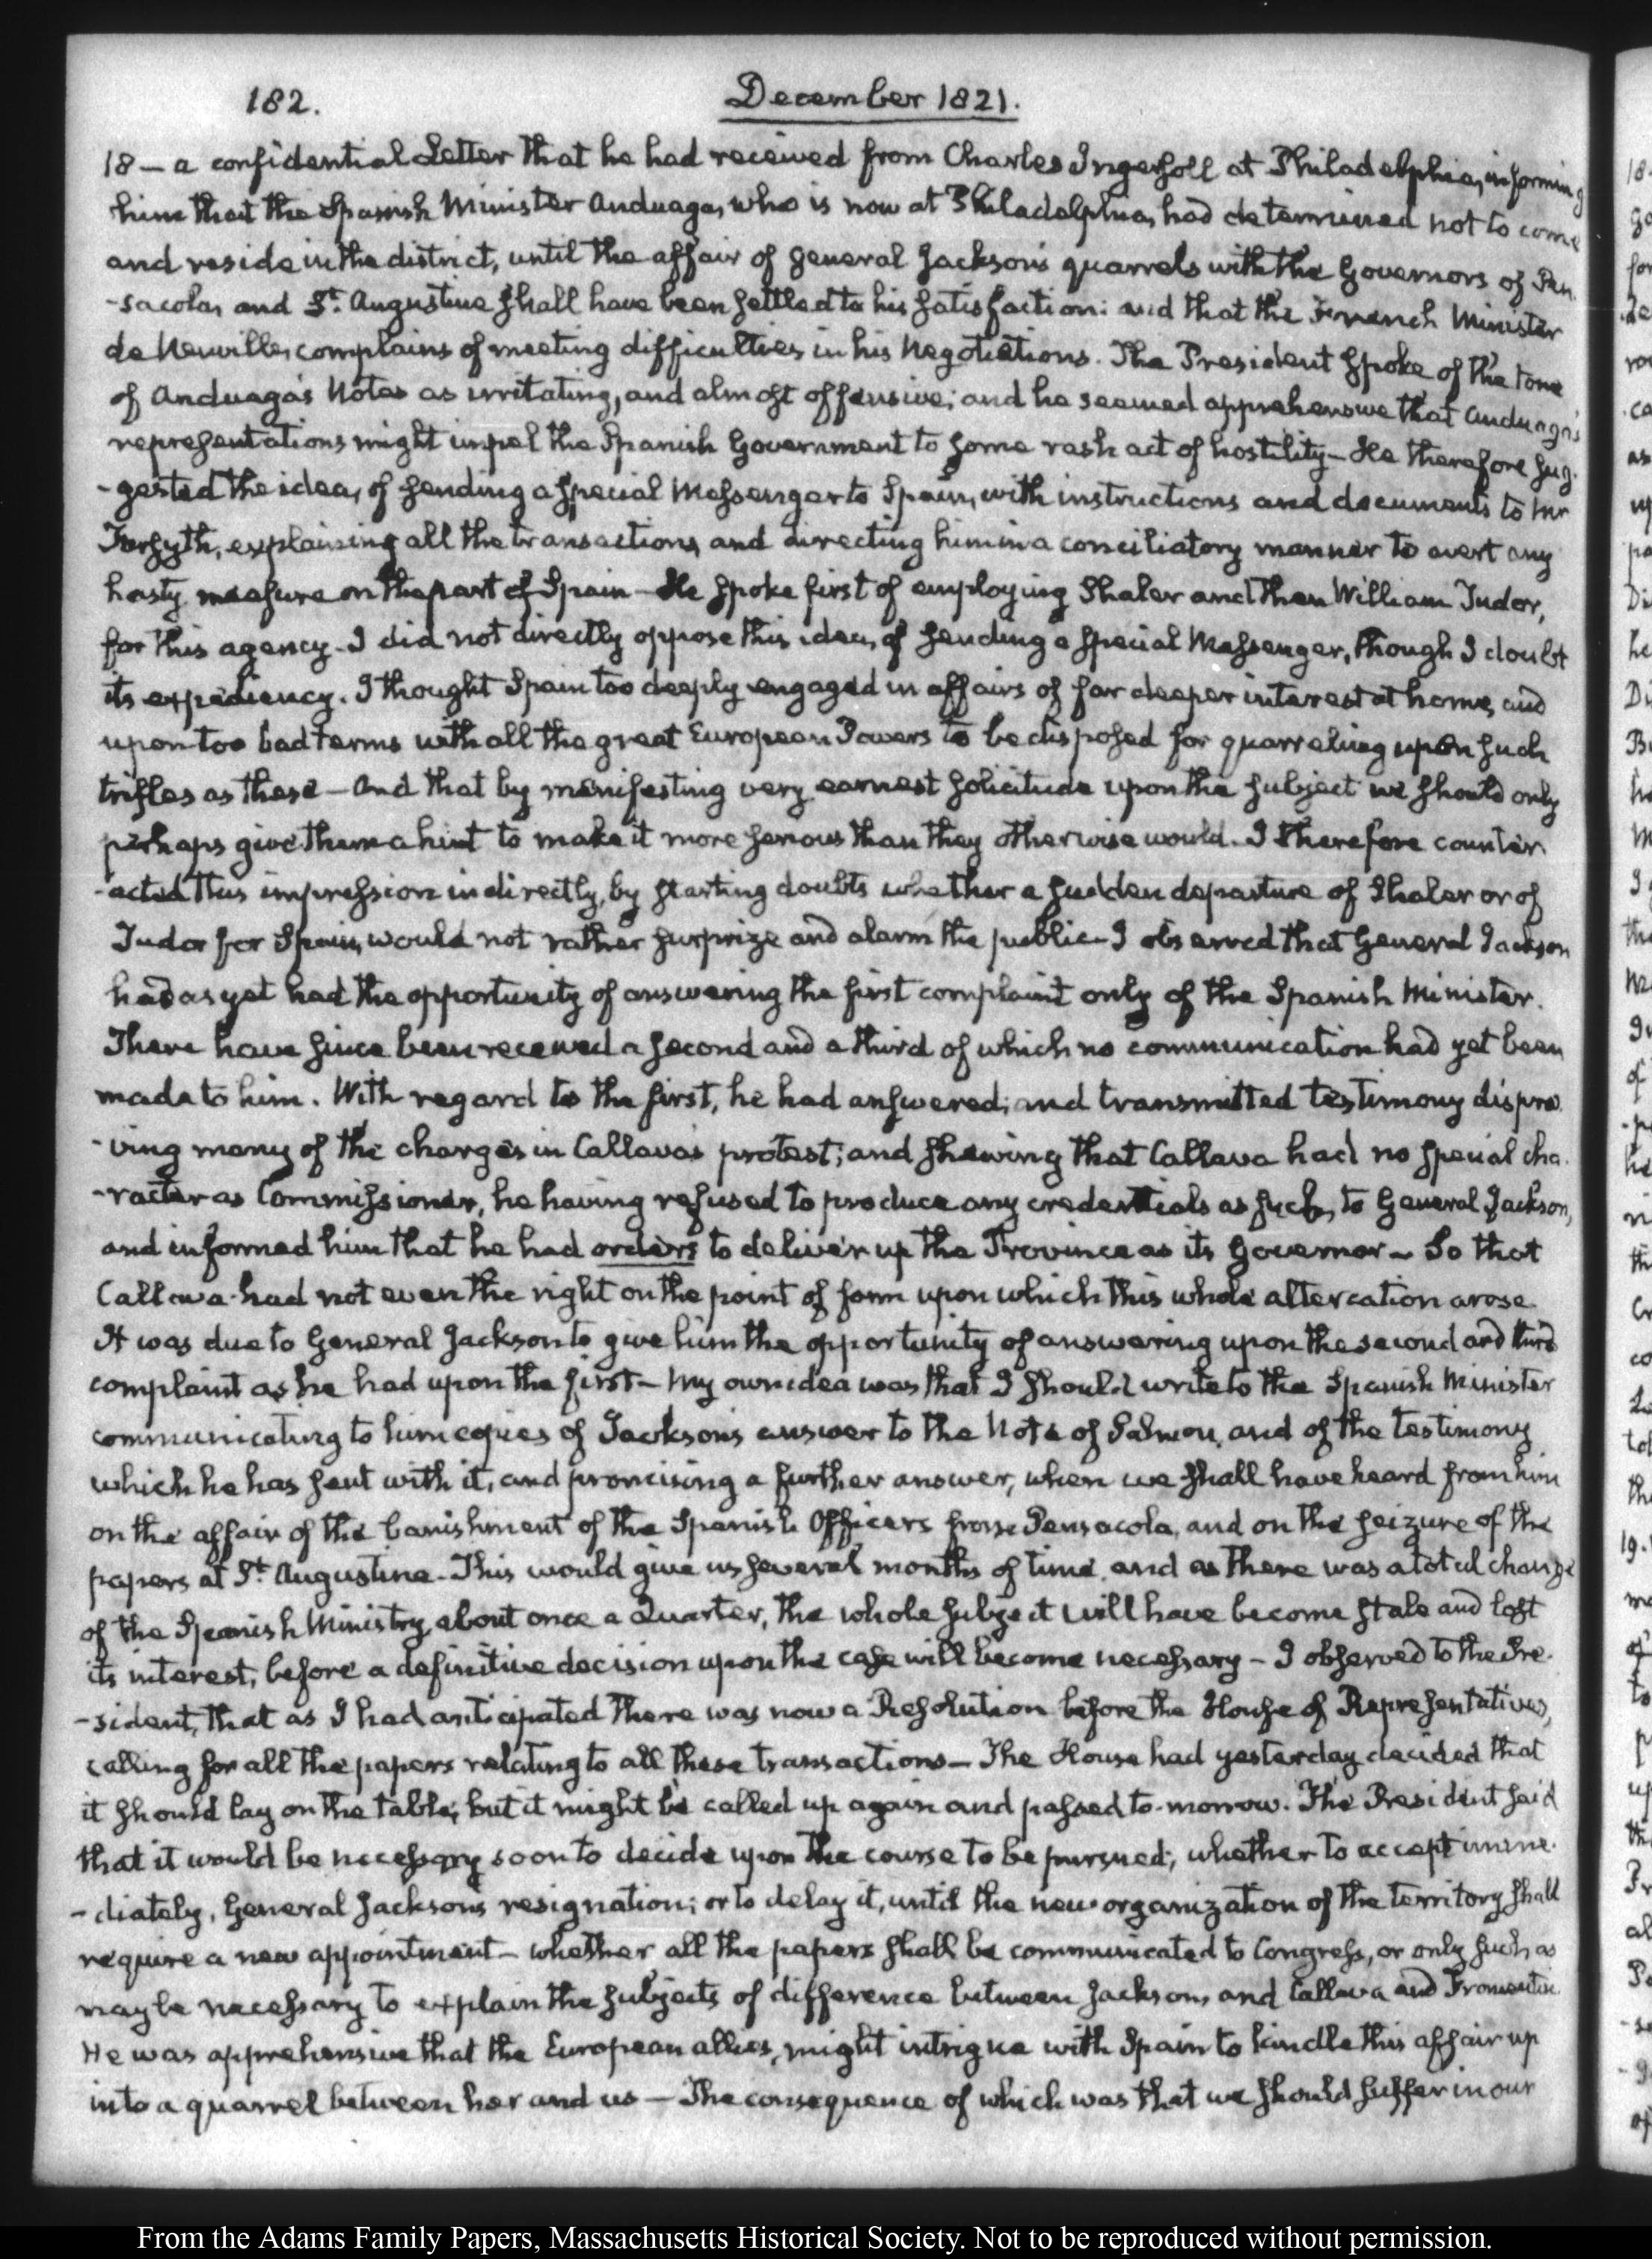 182.
December 1821.
18 — a confidential Letter that he had received from Charles Ingersoll at Philadelphia, informing
him that the Spanish Minister Anduaga, who is now at Philadelphia, had determined not to come
and reside in the district, until the affair of General Jackson's quarrels with the Governors of Pen
-sacola, and St. Augustine shall have been settled to his satisfaction: and that the French Minister
de Neuville, complains of meeting difficulties in his Negotiations. The President spoke of the tone
of Anduaga's Notes as irritating, and almost offensive; and he seemed apprehensive that Anduaga's
representations might impel the Spanish Government to some rash act of hostility — He therefore sug-
-gested the idea, of sending a special Messenger to Spain, with instructions and documents to Mr
Forsyth, explaining all the transactions, and directing him in a conciliatory manner to avert any
hasty measure on the part of Spain — He spoke first of employing Shaler and then William Tudor,
for this agency. I did not directly oppose this idea, of sending a special Messenger, though I doubt
its expediency. I thought Spain too deeply engaged in affairs of far deeper interest at home, and
upon too bad terms with all the great European Powers to be disposed for quarreling upon such
trifles as these — And that by manifesting very earnest solicitude upon the subject we should only
perhaps give them a hint to make it more serious than they otherwise would. I therefore counter
-acted this impression indirectly, by starting doubts whether a sudden departure of Shaler or of
Tudor for Spain, would not rather surprize and alarm the public — I observed that General Jackson
had as yet had the opportunity of answering the first complaint only of the Spanish Minister.
There have since been received a second and a third of which no communication had yet been
made to him. With regard to the first, he had answered, and transmitted testimony dispro
-ving many of the charges in Callava's protest; and shewing that Callava had no special cha.
-racter as Commissioner, he having refused to produce any credentials as such, to General Jackson,
and informed him that he had orders to deliver up the Province as its Governor — So that
Callava had not even the right on the point of form upon which this whole altercation arose.
It was due to General Jackson to give him the opportunity of answering upon the second and third
complaint as he had upon the first — My own idea was that I should write to the Spanish Minister
communicating to him copies of Jackson's answer to the Note of Salmon, and of the testimony
which he has sent with it, and promising a further answer, when we shall have heard from him
on the affair of the banishment of the Spanish Officers from Pensacola, and on the seizure of the
papers at St. Augustine. This would give us several months of time, and as there was a total change
of the Spanish Ministry, about once a Quarter, the whole subject will have become stale and lost
its interest, before a definitive decision upon the case will become necessary — I observed to the Pre-
-sident, that as I had anticipated there was now a Resolution before the House of Representatives,
calling for all the papers relating to all these transactions — The House had yesterday decided that
it should lay on the table; but it might be called up again and passed to-morrow. The President said
that it would be necessary soon to decide upon the course to be pursued; whether to accept imme-
-diately, General Jackson's resignation; or to delay it, until the new organization of the territory shall
require a new appointment — whether all the papers shall be communicated to Congress, or only such as
may be necessary to explain the subjects of difference between Jackson, and Callava and Fromentin.
He was apprehensive that the European allies, might intrigue with Spain to kindle this affair up
into a quarrel between her and us — The consequence of which was that we should suffer in our
From the Adams Family Papers, Massachusetts Historical Society. Not to be reproduced without permission.